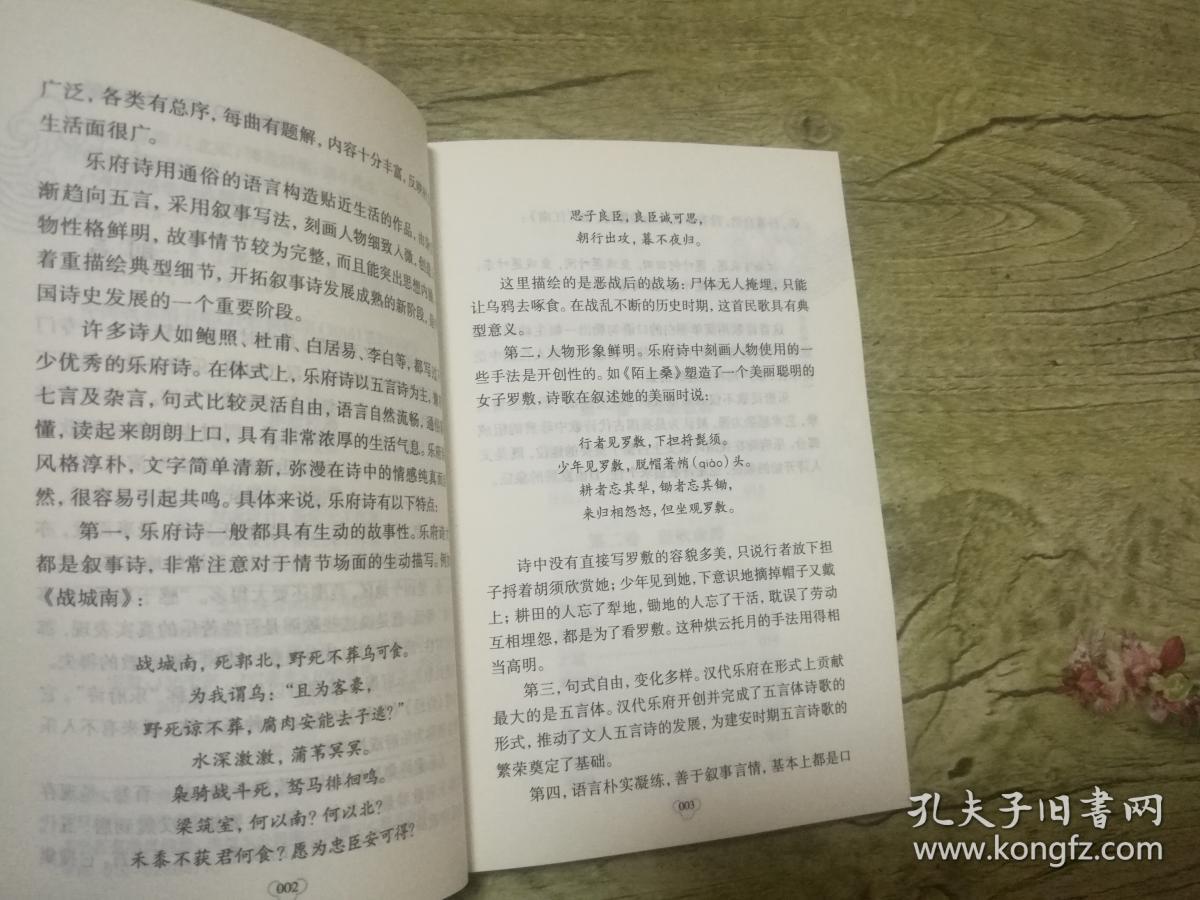 广泛，各类有总序，每曲有题解，内容十分丰富，反映
生活面很广。
乐府诗用通俗的语言构造贴近生活的作品，由
渐趋向五言，采用叙事写法，刻画人物细致入微，创造
物性格鲜明，故事情节较为完整，而且能突出思想内涵
着重描绘典型细节，开拓叙事诗发展成熟的新阶段，是
国诗史发展的一个重要阶段。
许多诗人如鲍照、杜甫、白居易、李白等，都写过
少优秀的乐府诗。在体式上，乐府诗以五言诗为主，兼
七言及杂言，句式比较灵活自由，语言自然流畅，通俗
懂，读起来朗朗上口，具有非常浓厚的生活气息。乐府
风格淳朴，文字简单清新，弥漫在诗中的情感纯真而
然，很容易引起共鸣。具体来说，乐府诗有以下特点：
第一，乐府诗一般都具有生动的故事性。乐府诗
都是叙事诗，非常注意对于情节场面的生动描写。例
《战城南》：
战城南，死郭北，野死不葬乌可食。
为我谓乌：“且为客豪，
野死谅不葬，腐肉安能去子逃？”
水深激激，蒲苇冥冥。
枭骑战斗死，驽马徘徊鸣。
梁筑室，何以南？何以北？
禾黍不获君何食？愿为忠臣安可得？
002
思子良臣，良臣诚可思，
朝行出攻，暮不夜归。
这里描绘的是恶战后的战场：尸体无人掩埋，只能
让乌鸦去啄食。在战乱不断的历史时期，这首民歌具有典
型意义。
第二，人物形象鲜明。乐府诗中刻画人物使用的一
些手法是开创性的。如《陌上桑》塑造了一个美丽聪明的
女子罗敷，诗歌在叙述她的美丽时说：
行者见罗敷，下担捋髭须。
少年见罗敷，脱帽著帩（qiào）头。
耕者忘其犁，锄者忘其锄，
来归相怨怒，但坐观罗敷。
诗中没有直接写罗敷的容貌多美，只说行者放下担
子捋着胡须欣赏她；少年见到她，下意识地摘掉帽子又戴
上；耕田的人忘了犁地，锄地的人忘了干活，耽误了劳动
互相埋怨，都是为了看罗敷。这种烘云托月的手法用得相
当高明。
第三，句式自由，变化多样。汉代乐府在形式上贡献
最大的是五言体。汉代乐府开创并完成了五言体诗歌的
形式，推动了文人五言诗的发展，为建安时期五言诗歌的
繁荣奠定了基础。
第四，语言朴实凝练，善于叙事言情，基本上都是口
003
孔夫子旧书网
www.kongfz.com